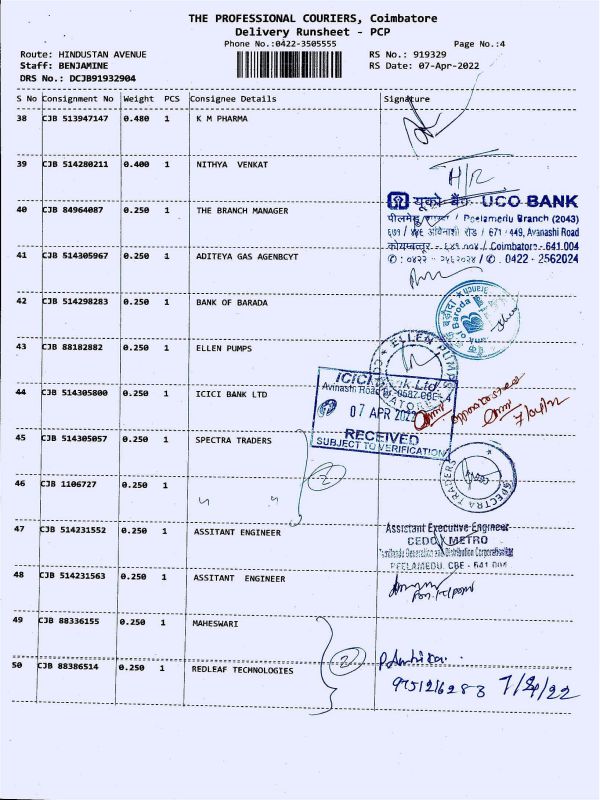 THE PROFESSIONAL COURIERS, Coimbatore
Delivery Runsheet - PCP
Phone No.:0422-3505555
Page No.:4
Route: HINDUSTAN AVENUE
RS No.: 919329
Staff: BENJAMINE
RS Date: 07-Apr-2022
DRS No.: DCJB91932904
S No Consignment No Weight PCS Consignee Details Signature
38 CJB 513947147 0.480 1 K M PHARMA
39 CJB 514280211 0.400 1 NITHYA VENKAT
H/R
यूको बैंक UCO BANK
40 CJB 84964087 0.250 1 THE BRANCH MANAGER
पीलमेडु / Peelamedu Branch (2043)
रोड / 671 - 449, Avanashi Road
/ Coimbatore - 641 004
41 CJB 514305967 0.250 1 ADITEYA GAS AGENBCYT
0422 - 2562024
42 CJB 514298283 0.250 1 BANK OF BARADA
of Baroda
43 CJB 88182882 0.250 1 ELLEN PUMPS
ELLEN PUMPS
44 CJB 514305800 0.250 1 ICICI BANK LTD
ICICI Bank Ltd.
Avinashi Road
07 APR 2022
RECEIVED
SUBJECT TO VERIFICATION
7/04/22
45 CJB 514305057 0.250 1 SPECTRA TRADERS
2
SPECTRA TRADERS
46 CJB 1106727 0.250 1 " "
47 CJB 514231552 0.250 1 ASSITANT ENGINEER
Assistant Executive Engineer
CEDC / METRO
Tamilnadu Generation and Distribution Corporation
PEELAMEDU, CBE - 641 004
48 CJB 514231563 0.250 1 ASSITANT ENGINEER
49 CJB 88336155 0.250 1 MAHESWARI
2
50 CJB 88386514 0.250 1 REDLEAF TECHNOLOGIES
9751216283 7/4/22